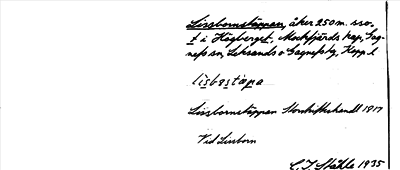 Lissbornstäppan, åker 250 m. sso.
t i Högberget, Mockfjärds kap, Gag-
nefs sn, Leksands o Gagnefs tg, Kopp. l
lisbəstäpa
Lissbornstäppan Storskifteshandl 1817
Vid Lissborn
C. I. Ståhle 1935